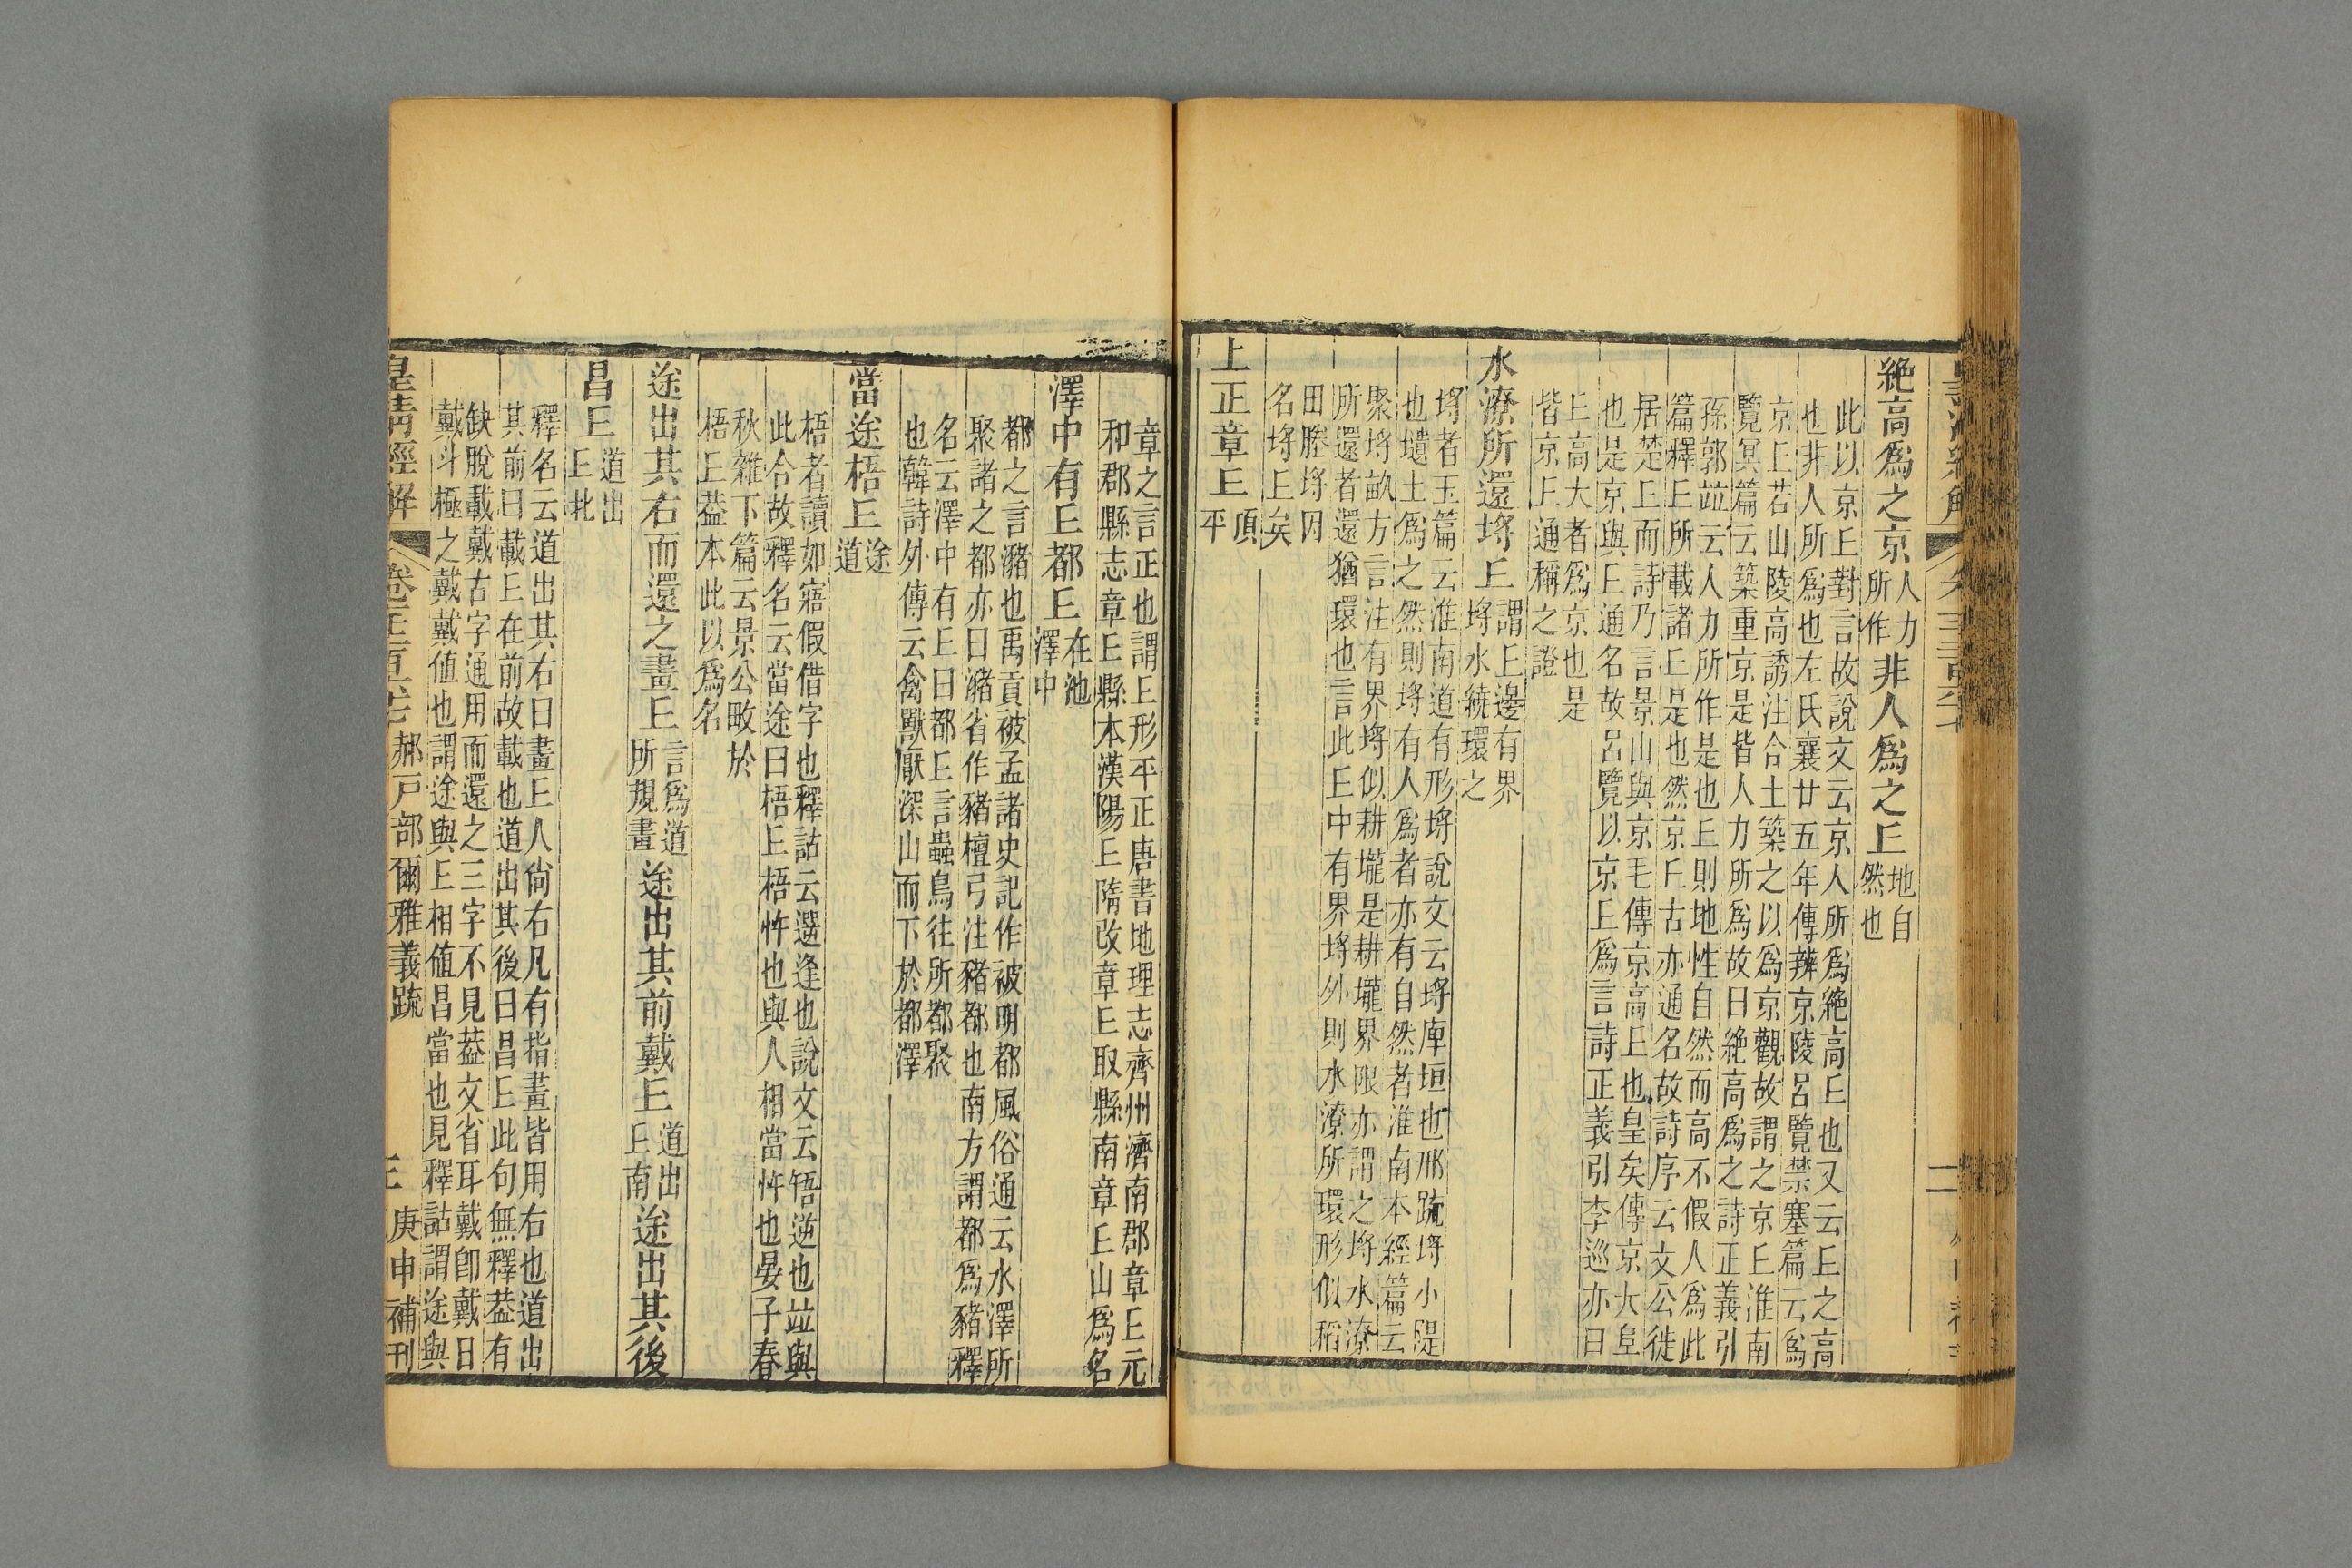 絶高爲之京人力所作非人爲之丘地自然也
此以京丘對言故說文云京人所爲絶高丘也又云丘之高
也非人所爲也左氏襄廿五年傳辨京陵呂覽禁塞篇云爲
京丘若山陵高誘注合土築之以爲京觀故謂之京丘淮南
覽冥篇云築重京是皆人力所爲故曰絶高爲之詩正義引
孫郭竝云人力所作是也丘則地性自然而高不假人爲此
篇釋丘所載諸丘是也然京丘古亦通名故詩序云文公徙
居楚丘而詩乃言景山與京毛傳京高丘也皇矣傳京大阜
也是京與丘通名故呂覽以京丘爲言詩正義引李巡亦曰
丘高大者爲京也是
皆京丘通稱之證
水潦所還埒丘謂丘邊有界埒水繞環之
埒者玉篇云淮南道有形埒說文云埒庳垣也邢疏埒小隄
也壝土爲之然則埒有人爲者亦有自然者淮南本經篇云
聚埒畝方言注有界埒似耕壠是耕壠界限亦謂之埒水潦
所還者還猶環也言此丘中有界埒外則水潦所環形似稻
田塍埒因
名埒丘矣
上正章丘頂平
章之言正也謂丘形平正唐書地理志齊州濟南郡章丘元
和郡縣志章丘縣本漢陽丘隋改章丘取縣南章丘山爲名
澤中有丘都丘在池澤中
都之言瀦也禹貢被孟諸史記作被明都風俗通云水澤所
聚諸之都亦曰瀦省作豬檀弓注豬都也南方謂都爲豬釋
名云澤中有丘曰都丘言蟲鳥往所都聚
也韓詩外傳云禽獸厭深山而下於都澤
當途梧丘途道
梧者讀如寤假借字也釋詁云遻逢也說文云啎逆也竝與
此合故釋名云當途曰梧丘梧忤也與人相當忤也晏子春
秋雜下篇云景公畋於
梧丘葢本此以爲名
途出其右而還之畫丘言爲道所規畫途出其前戴丘道出丘南途出其後
昌丘道出丘北
釋名云道出其右曰畫丘人尙右凡有指畫皆用右也道出
其前曰載丘在前故載也道出其後曰昌丘此句無釋葢有
缺脫載戴古字通用而還之三字不見葢文省耳戴卽戴日
戴斗極之戴戴值也謂途與丘相值昌當也見釋詁謂途與
皇淸經解
郝戶部爾雅義疏
庚申補刊